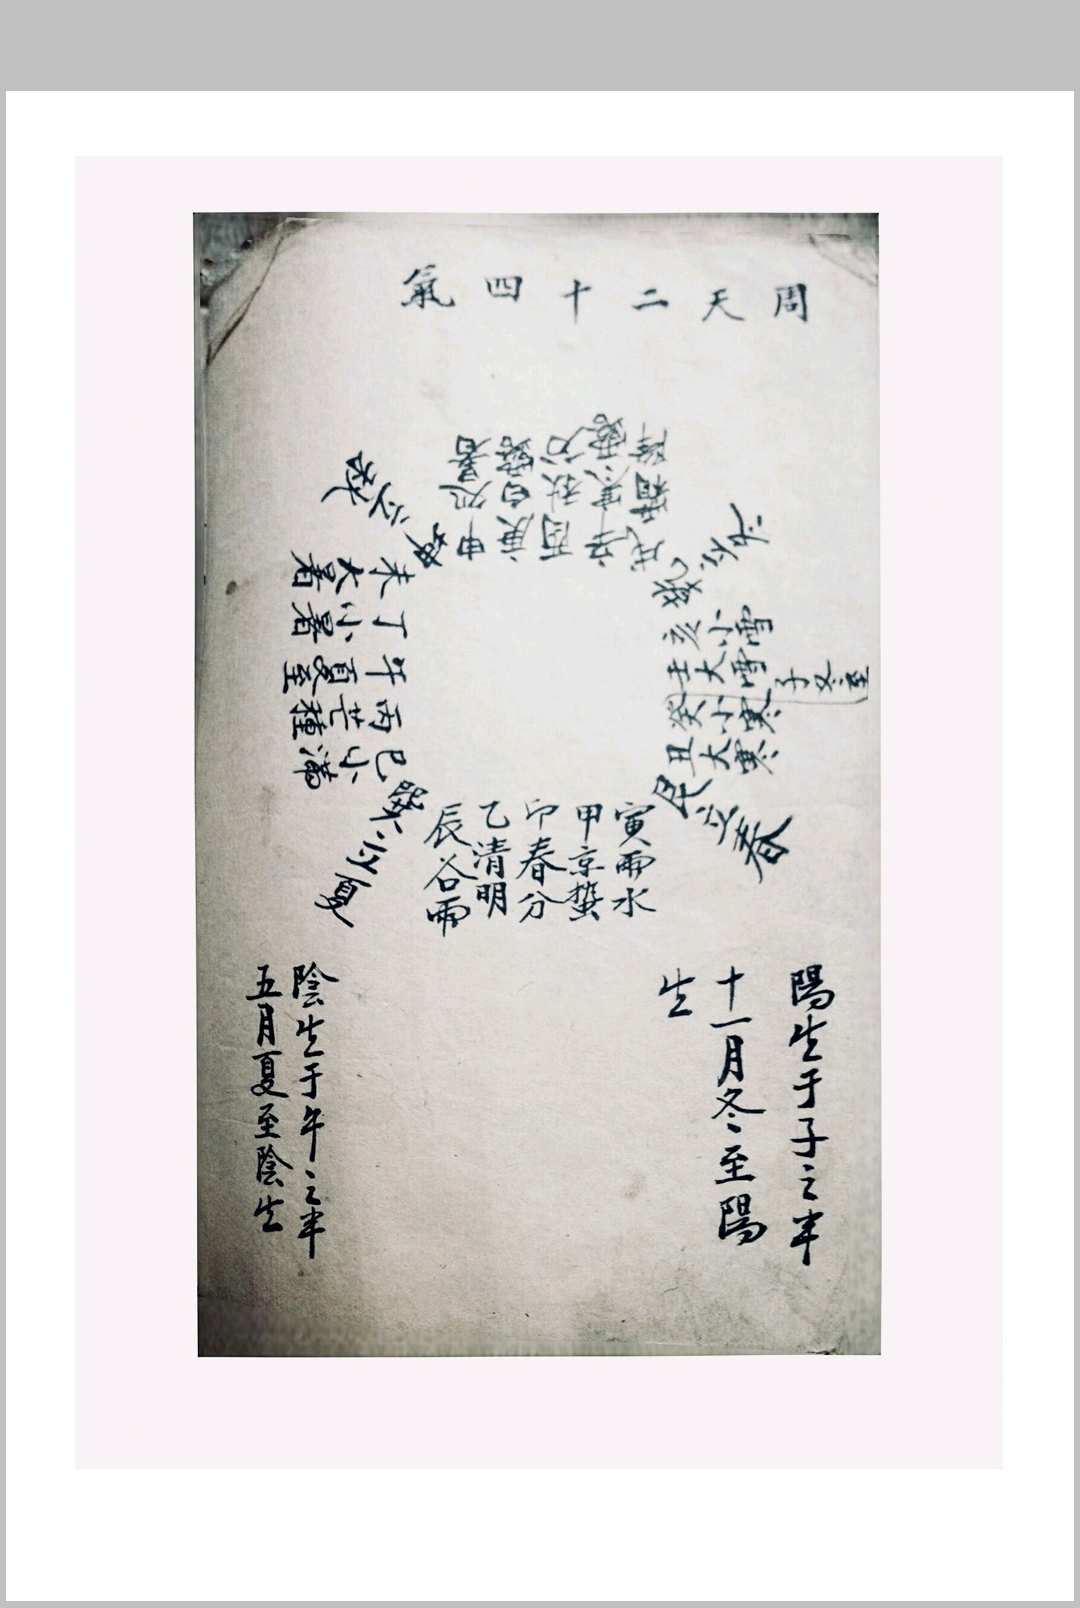 周天二十四氣
戌霜降
辛寒露
酉秋分
庚白露
申処暑
立秋
未大暑
丁小暑
午夏至
丙芒種
巳小滿
巽立夏
辰谷雨
乙清明
卯春分
甲京蟄
寅雨水
艮立春
丑大寒
癸小寒
子冬至
壬大雪
亥小雪
乾立冬
陽生于子之半
十一月冬至陽
生
陰生于午之半
五月夏至陰生